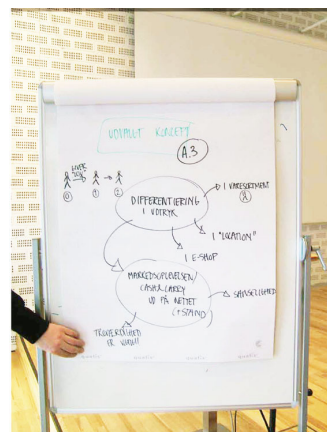 UDVALGT KONCEPT
A.3
HVER
DIFFERENTIERING
I UDTRYK
I VARESORTIMENT
I "LOCATION"
I E-SHOP
MARKEDSOPLEVELSEN/
CASH & CARRY
UD PÅ NETTET
(+STAND)
SANSELIGHED
TROVÆRDIGHED
ER VIGTIGT